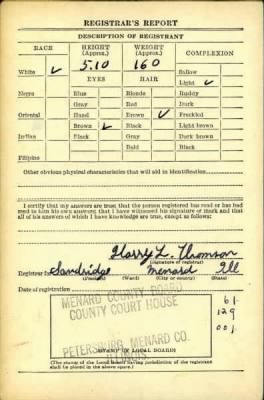 REGISTRAR'S REPORT
DESCRIPTION OF REGISTRANT
RACE HEIGHT (Approx.) WEIGHT (Approx.) COMPLEXION
5-10 160
White ✓ EYES HAIR Sallow
Light ✓
Negro Blue Blonde Ruddy
Gray Red Dark
Oriental Hazel Brown ✓ Freckled
Brown ✓ Black Light brown
Indian Black Gray Dark brown
Bald Black
Filipino
Other obvious physical characteristics that will aid in identification
I certify that my answers are true; that the person registered has read or has had
read to him his own answers; that I have witnessed his signature or mark and that
all of his answers of which I have knowledge are true, except as follows:
Harry L. Thomson
(Signature of registrar)
Registrar for Sandridge Menard Ill
(Precinct) (Ward) (City or county) (State)
Date of registration
61
129
001
MENARD COUNTY BOARD
COUNTY COURT HOUSE
PETERSBURG, MENARD CO.
ILLINOIS
(STAMP OF LOCAL BOARD)
(The stamp of the Local Board having jurisdiction of the registrant
shall be placed in the above space.)